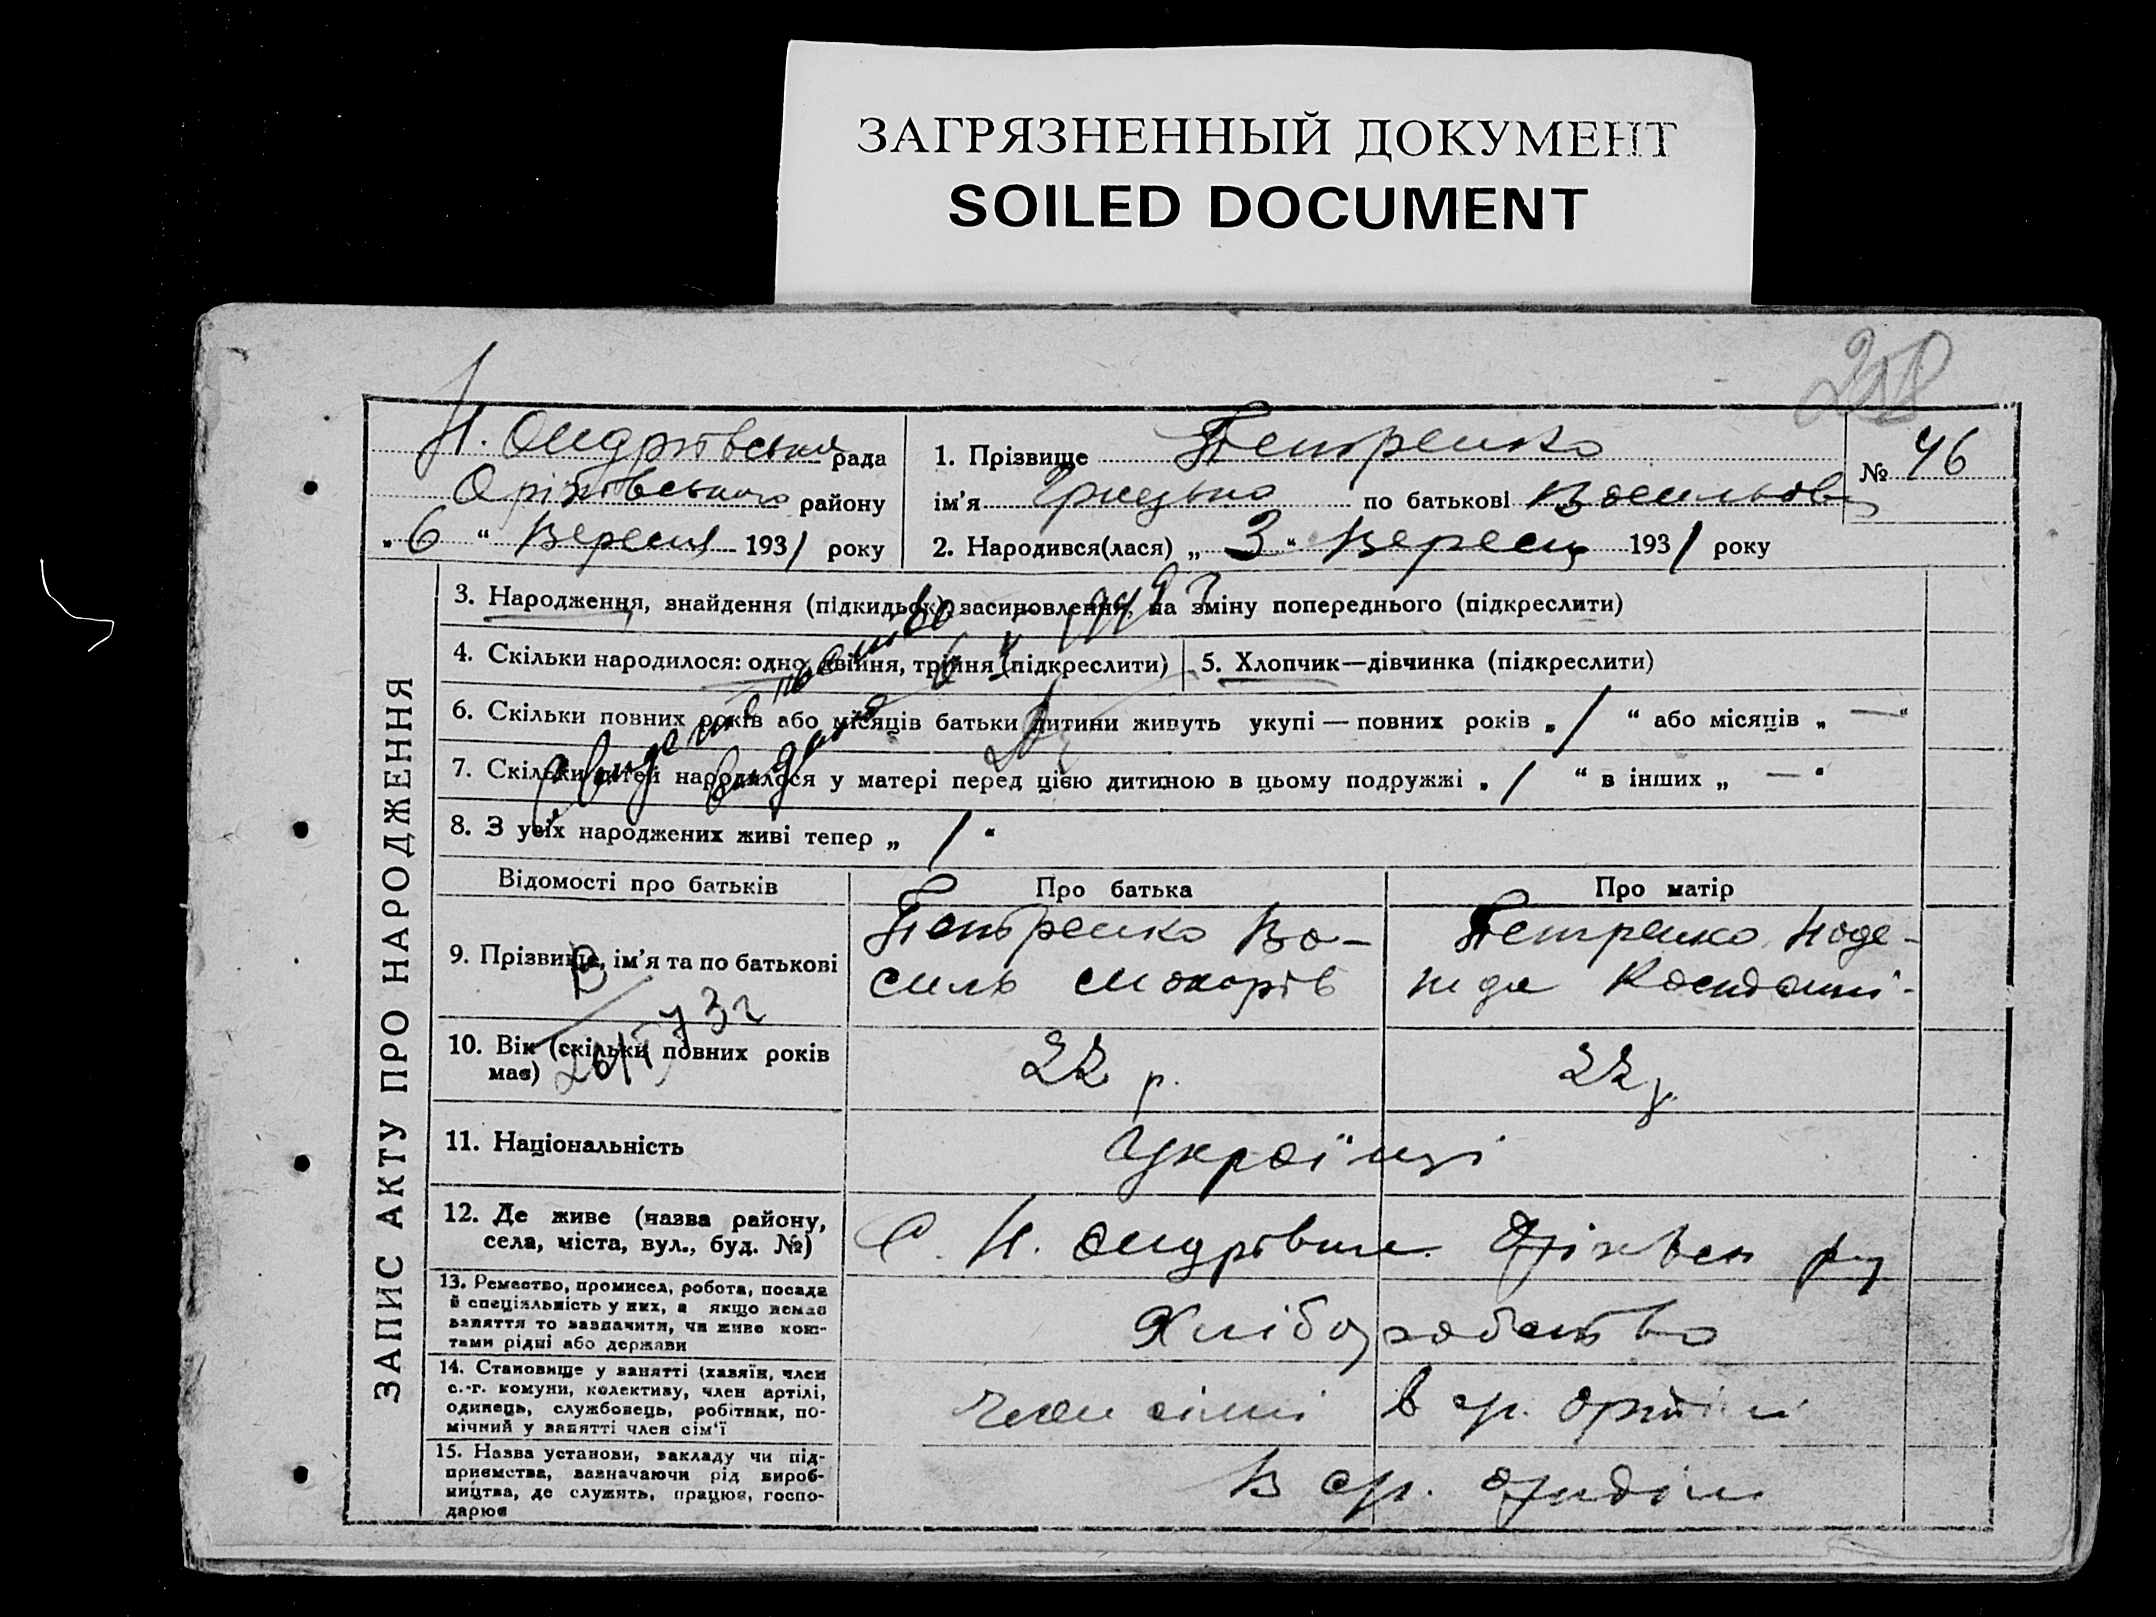 ЗАГРЯЗНЕННЫЙ ДОКУМЕНТ
SOILED DOCUMENT
258
Н. Ондріївська рада
Оріхівського району
„ 6 “ Вересня 1931 року
1. Прізвище Петренко
ім’я Грицько по батькові Васильов
№ 46
2. Народився(лася) „ 3 “ Вересня 1931 року
ЗАПИС АКТУ ПРО НАРОДЖЕННЯ
3. Народження, знайдення (підкидьок), засиновлення, на зміну попереднього (підкреслити)
4. Скільки народилося: одно, двійня, трійня (підкреслити)
5. Хлопчик—дівчинка (підкреслити)
6. Скільки повних років або місяців батьки дитини живуть укупі — повних років „ 1 “ або місяців „ — “
7. Скільки дітей народилося у матері перед цією дитиною в цьому подружжі „ 1 “ в інших „ — “
8. З усіх народжених живі тепер „ 1 “
Відомості про батьків
Про батька
Про матір
9. Прізвище, ім’я та по батькові
Петренко Ва-
силь
Петренко Наде-
жда
10. Вік (скільки повних років
має)
22 р.
22 р.
11. Національність
Українці
12. Де живе (назва району,
села, міста, вул., буд. №)
С. Н. Ондрівка Оріхівськ р-у
13. Ремество, промисел, робота, посада
й спеціяльність у них, а якщо немає
заняття то зазначити, чи живе кош-
тами рідні або держави
Хліборобство
14. Становище у занятті (хазяїн, член
с.-г. комуни, колективу, член артілі,
одинець, службовець, робітник, по-
мічний у занятті член сім'ї
член сімі в ср. артілі
15. Назва установи, закладу чи під-
приємства, зазначаючи рід вироб-
ництва, де служить, працює, госпо-
дарює
В ср. артілі